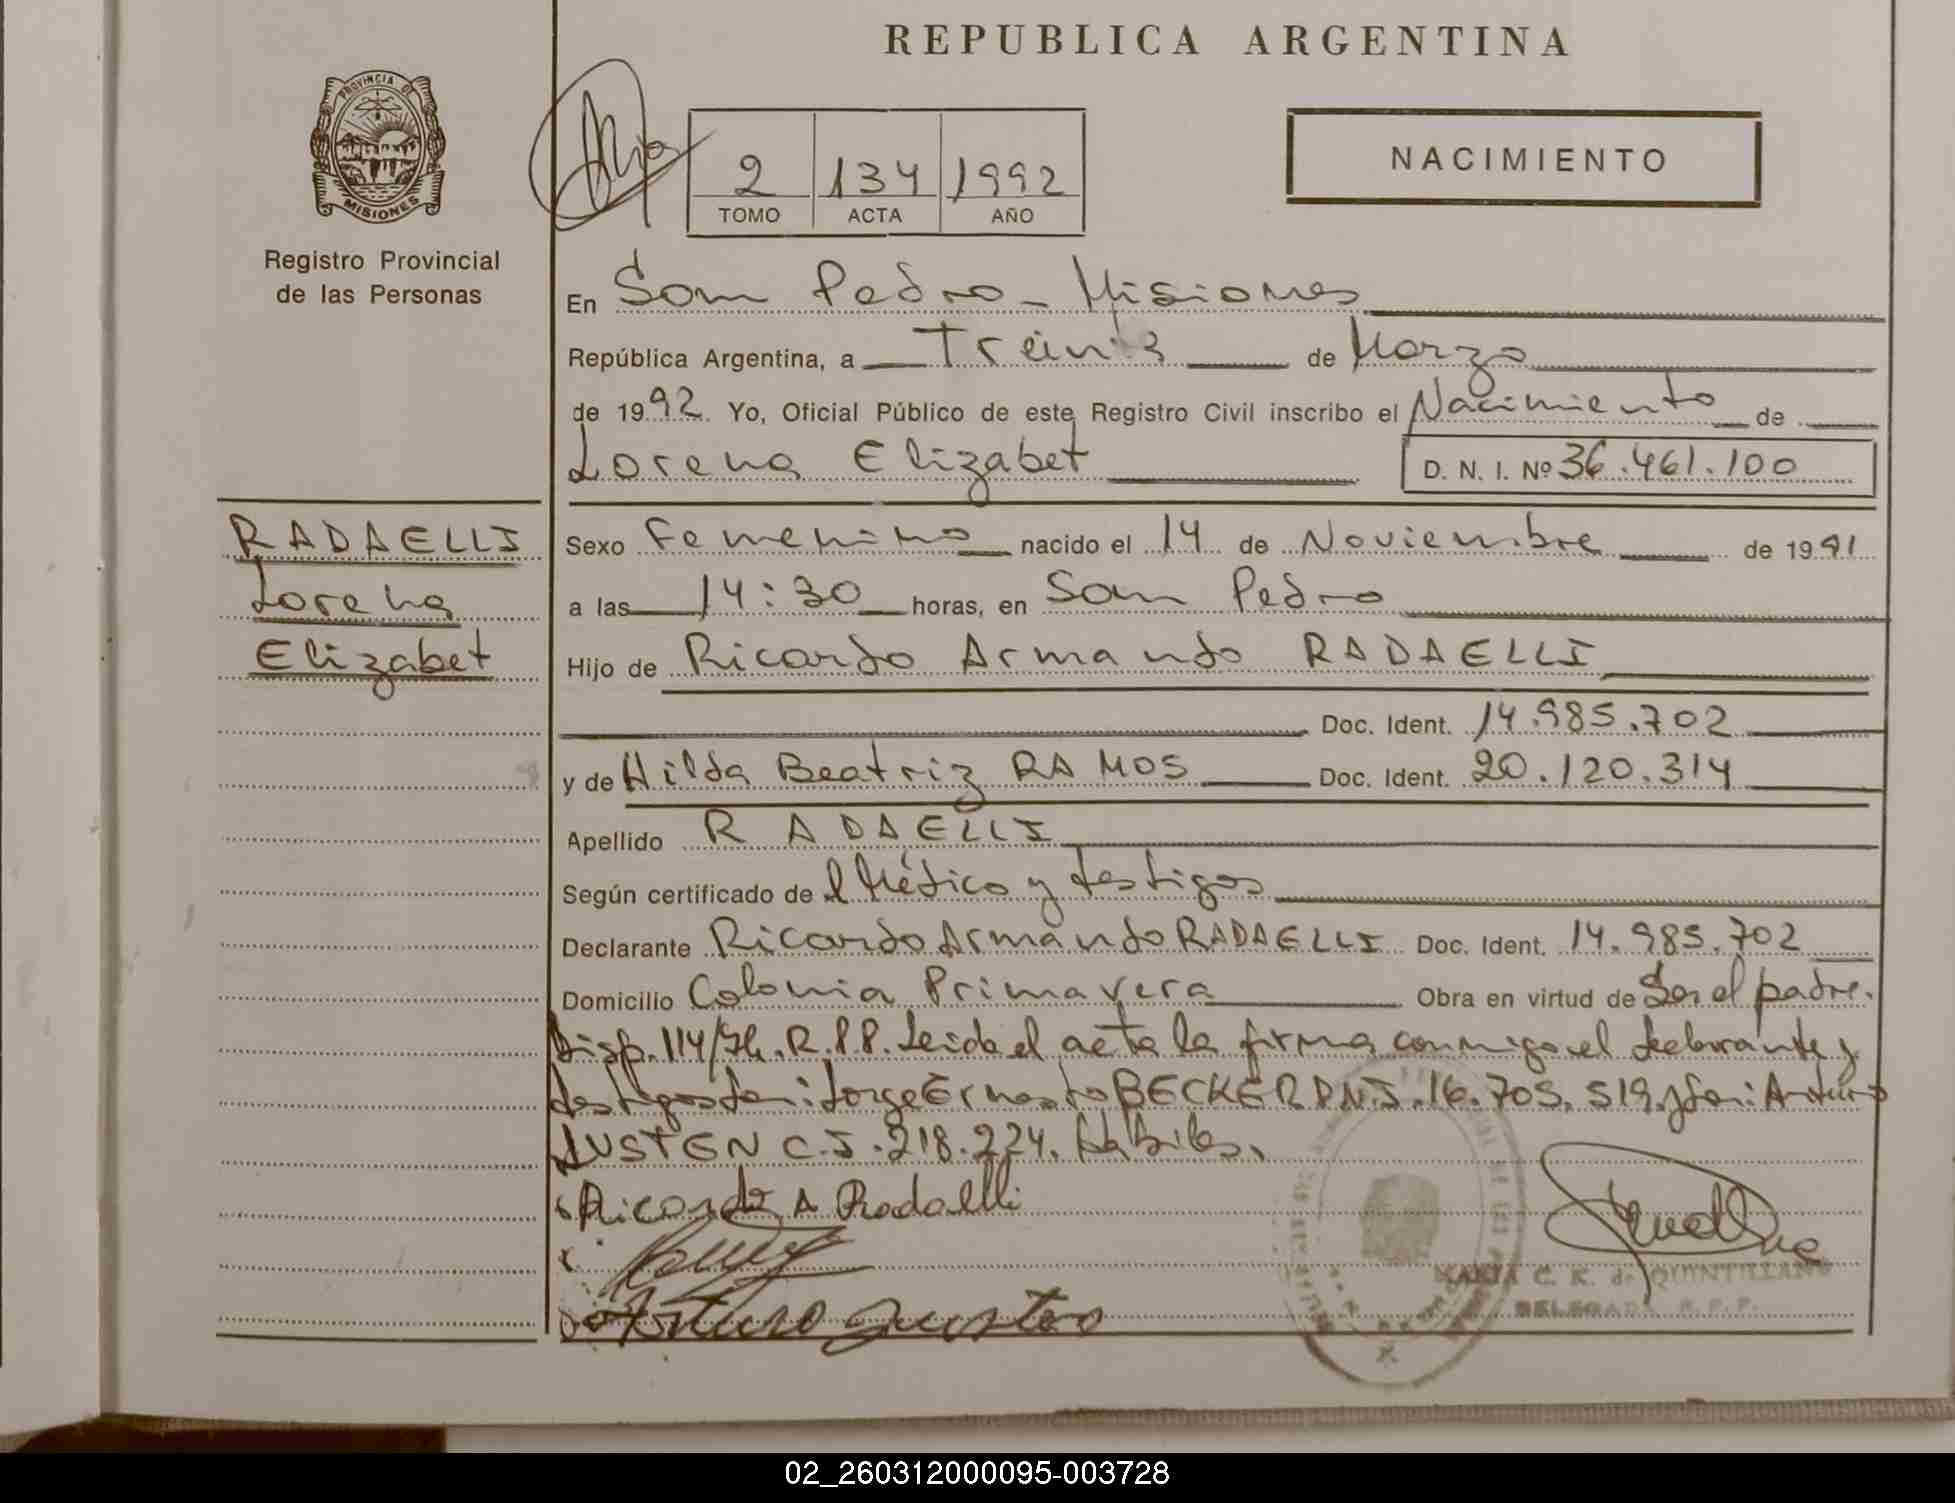 REPUBLICA ARGENTINA
PROVINCIA DE
MISIONES
Registro Provincial
de las Personas
2 134 1992
TOMO ACTA AÑO
NACIMIENTO
En San Pedro - Misiones
República Argentina, a Treinta de Marzo
de 1992. Yo, Oficial Público de este Registro Civil inscribo el Nacimiento de
Lorena Elizabet D. N. I. Nº 36.461.100
RADAELLI
Lorena
Elizabet
Sexo Femenino nacido el 14 de Noviembre de 1991
a las 14:30 horas, en San Pedro
Hijo de Ricardo Armando RADAELLI
Doc. Ident. 14.985.702
y de Hilda Beatriz RAMOS Doc. Ident. 20.120.314
Apellido RADAELLI
Según certificado de l Médico y testigos
Declarante Ricardo Armando RADAELLI Doc. Ident. 14.985.702
Domicilio Colonia Primavera Obra en virtud de Ser el padre.
Disp. 114/ R.P.P. Leida el acta la firma conmigo el declarante y
testigos Jorge Ernesto BECKER DNI. 16.705.519. y Arturo
JUSTEN C.I. 218.224. Habiles.
Ricardo A Radaelli
Arturo Justen
MARIA C. K. de QUINTILLANO
DELEGADA R.P.P.
02_260312000095-003728